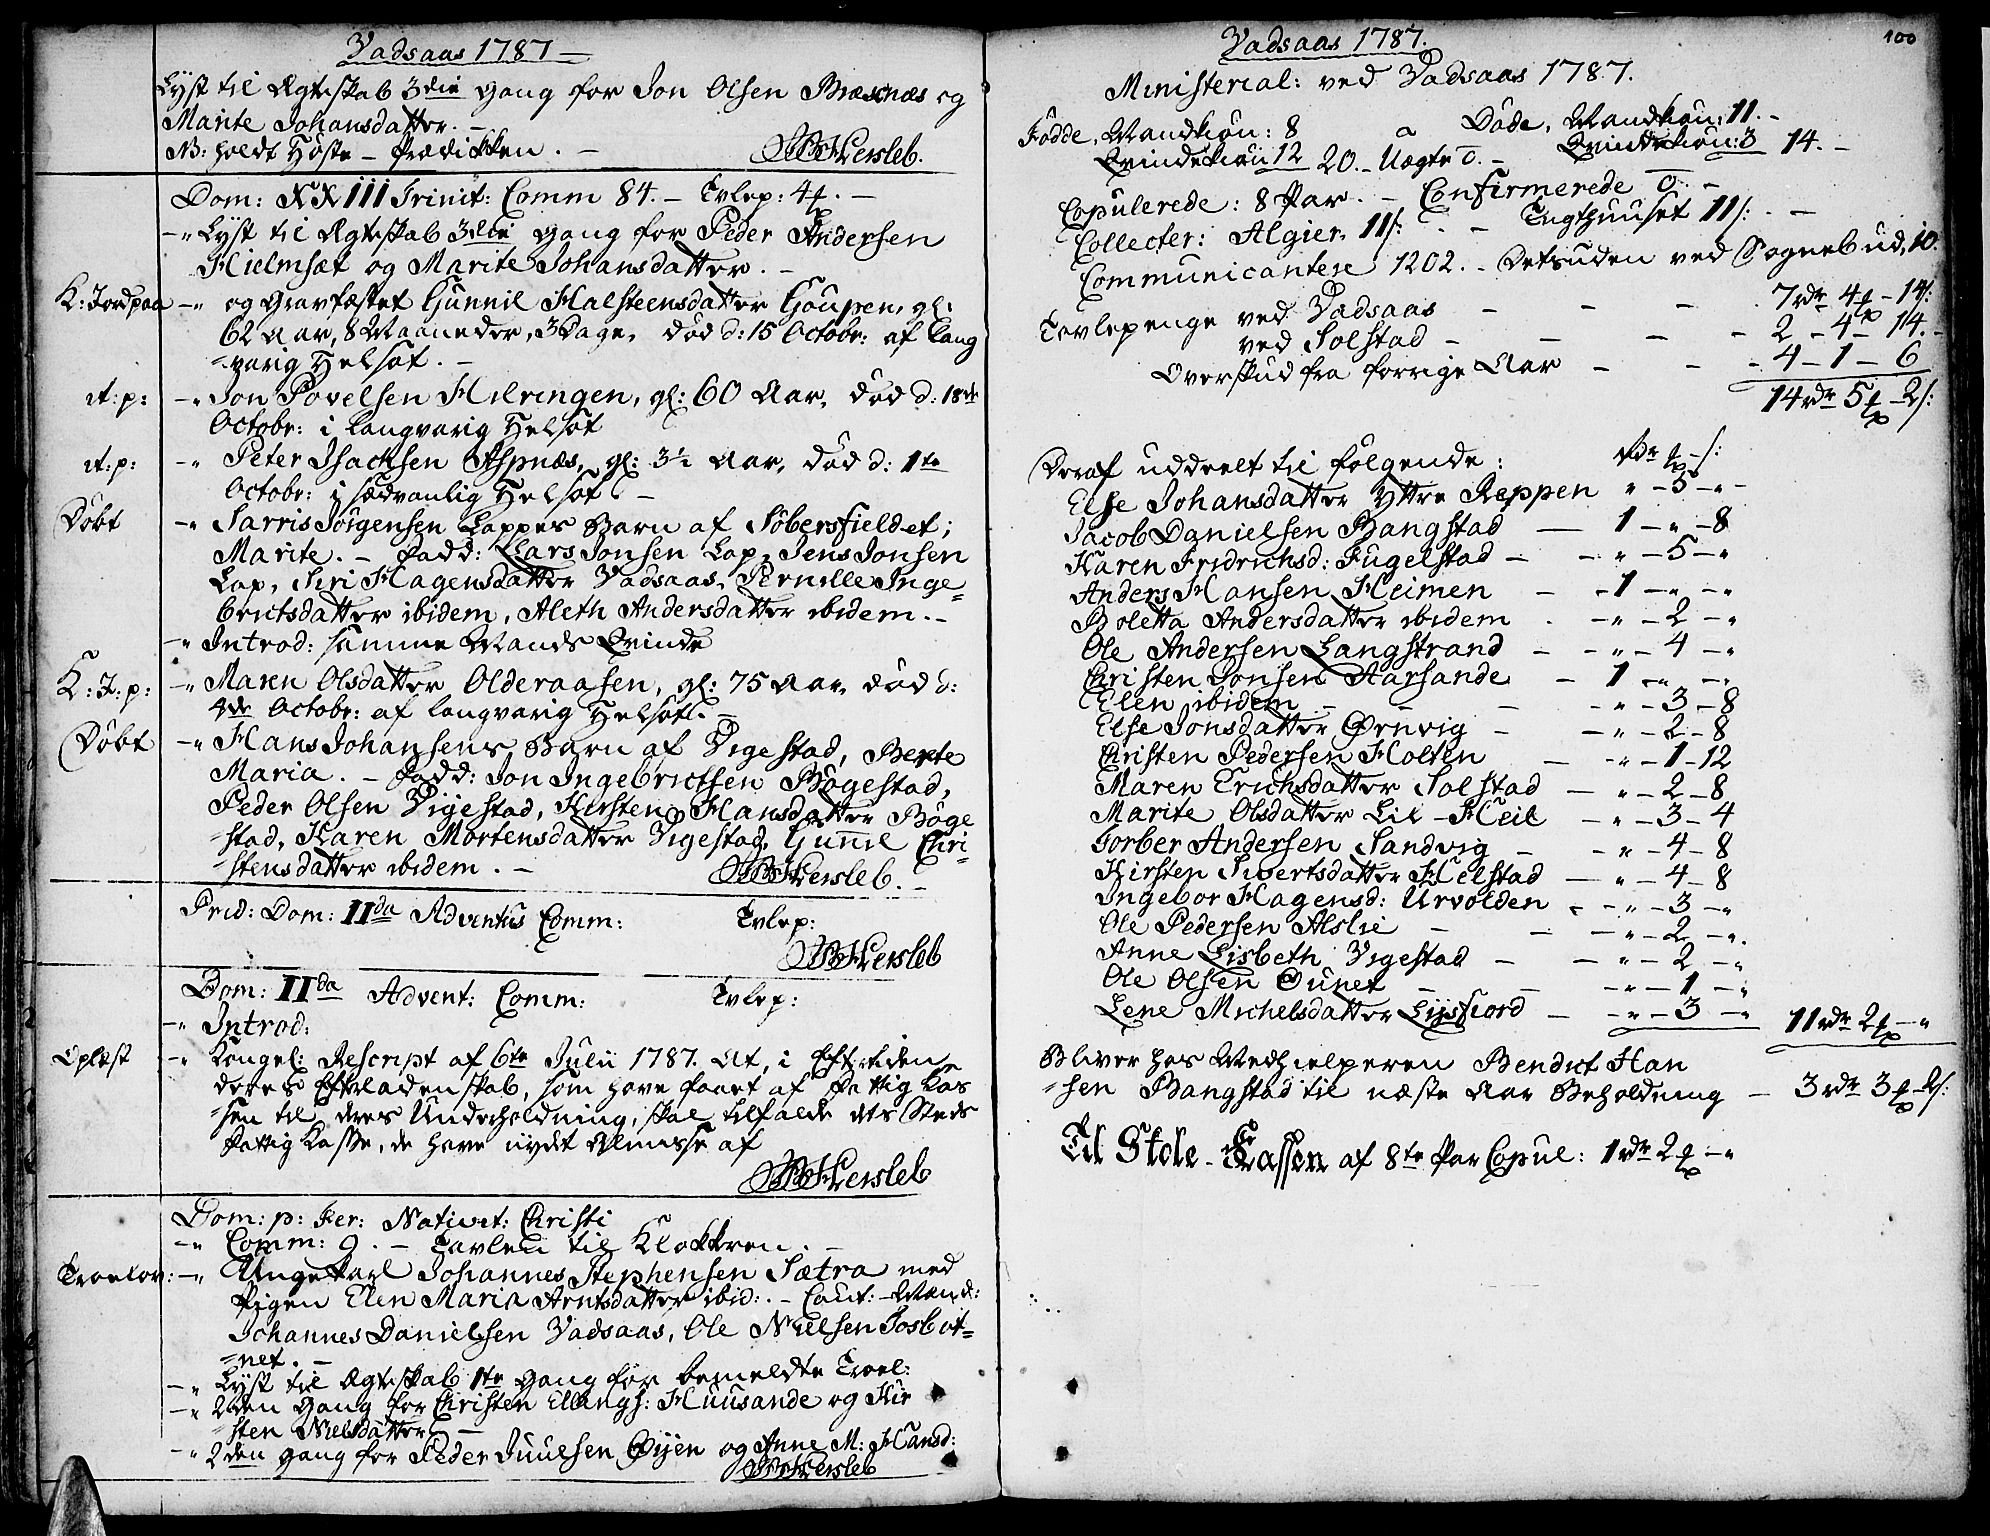 Vadsaas 1787 —
Lyst til Ægteskab 3die Gang for Jon Olsen Bræsnæs og
Marite Johansdatter. —
NB: holdt Høste-Prædikken. — Hersleb.
Dom: XXIII Trinit: Comm 84. — Tvlep: 4 —
—" Lyst til Ægteskab 3die Gang for Peder Andersen
Hielmsæt og Marite Johansdatter. —
K: Jordpaa —" og Gravfæstet Gunnil Halsteensdatter Goupen, gl:
62 Aar, 8 Maaneder, 3 Dage, død d: 15 Octobr: af lang
=varig Helsot. —
it: p: —" Jon Povelsen Hilringen, gl: 60 Aar, død d: 18de
Octobr: i langvarig Helsot
it: p: —" Peter Isachsen Aspnæs, gl: 3½ Aar, død d: 1te
Octobr: i sædvanlig Helsot —
Døbt —" Sarris Jørgensen Lappes Barn af Søbersfieldet;
Marite. — Fadd: Lars Jonsen Lap, Jens Jonsen
Lap, Siri Hagensdatter Vadsaas, Pernille Inge=
brictsdatter ibidem, Aleth Andersdatter ibidem. —
—" Introd: samme Mands Qvinde
K: J: p: —" Maren Olsdatter Olderaasen, gl: 75 Aar, død d:
4de Octobr: af langvarig Helsot. —
Døbt —" Hans Johansens Barn af Vigestad, Berte
Maria. — Fadd: Jon Ingebrictsen Bøgestad,
Peder Olsen Vigestad, Kirsten Hansdatter Bøge
=stad, Karen Mortensdatter Vigestad, Gunnil Chri=
=stensdatter ibidem. — Hersleb. —
Prid: Dom: IIda Adventus Comm: Tvlep:
Hersleb
Dom: IIda Advent: Comm: Tvlep:
—" Introd:
Oplæst —" Kongel: Rescript af 6te Julii 1787. At, i
deres Efterladenskab, som have faaet af Fattig Kas
=sen til deres Underholdning, skal tilfalde det Steds
Fattig Kasse, de have nydt Almisse af
Hersleb
Dom: p: Fer: Nativit: Christi
—" Comm: 9. — Tavlen til Klokkeren. —
Troelov: —" Unge Karl Johannes Stephensen Sætra med
Pigen Elen Maria Arntsdatter ibid: — Caut: Mænd:
Johannes Danielsen Vadsaas, Ole Nielsen Fosbot=
=net. —
—" Lyst til Ægteskab 1te Gang for bemeldte Troel:
—" 2den Gang for Christen Ellings: Huusande og Kir
=sten Nielsdatter —
—" 2den Gang for Peder Juulsen Øijen og Anne M: Hansd:
Hersleb
100
Vadsaas 1787.
Ministerial: ved Vadsaas 1787.
Fødde, Mandkiøn: 8 Døde, Mandkiøn: 11. —
Qvindekiøn 12 20. — Uægte 0. — Qvindekiøn: 3 14. —
Copulerede: 8 Par. — Confirmerede 0. —
Collecter: Algier, 11 /: — Tugthuuset 11 /: —
Communicantere 1202. — Desuden ved Sognebud, 10.
Tavlepenge ved Vadsaas — — 7 rdr 4 – 14 /:
ved Solstad — — — 2 – 4 – 14. –
Overskud fra forrige Aar — — 4 – 1 – 6
14 rdr 5 – 2 /:
Deraf uddeelt til følgende: Rdr – /:
Else Johansdatter Yttre Reppen " – 5 – "
Jacob Danielsen Bangstad — 1 – " – 8
Karen Fridrichsd: Fugelstad — " – 5 – "
Anders Hansen Heimen — 1 – " – "
Boletta Andersdatter ibidem — " – 2 – "
Ole Andersen Langstrand — " – 4 – "
Christen Jonsen Aarsande — 1 – " – "
Elen ibidem — " – 3 – 8
Else Jonsdatter Ørnvig — " – 2 – 8
Christen Pedersen Holten — " – 1 – 12
Maren Erichsdatter Solstad — " – 2 – 8
Marite Olsdatter Lil-Heil — " – 3 – 4
Torber Andersen Sandvig — " – 4 – 8
Kirsten Sivertsdatter Helstad — " – 4 – 8
Ingebor Hagensd: Urvolden — " – 3 – "
Ole Pedersen Alslie — " – 2 – "
Anne Lisbeth Vigestad — " – 2 – "
Ole Olsen Øunet — " – 1 – "
Lene Michelsdatter Lijsfiord — " – 3 – " 11 rdr 2 – "
Bliver hos Medhielperen Bendict Han
=sen Bangstad til næste Aar Beholdning — 3 rdr 3 – 2 /:
Til Stole-Kassen af 8te Par Copul: 1 rdr 2 – "